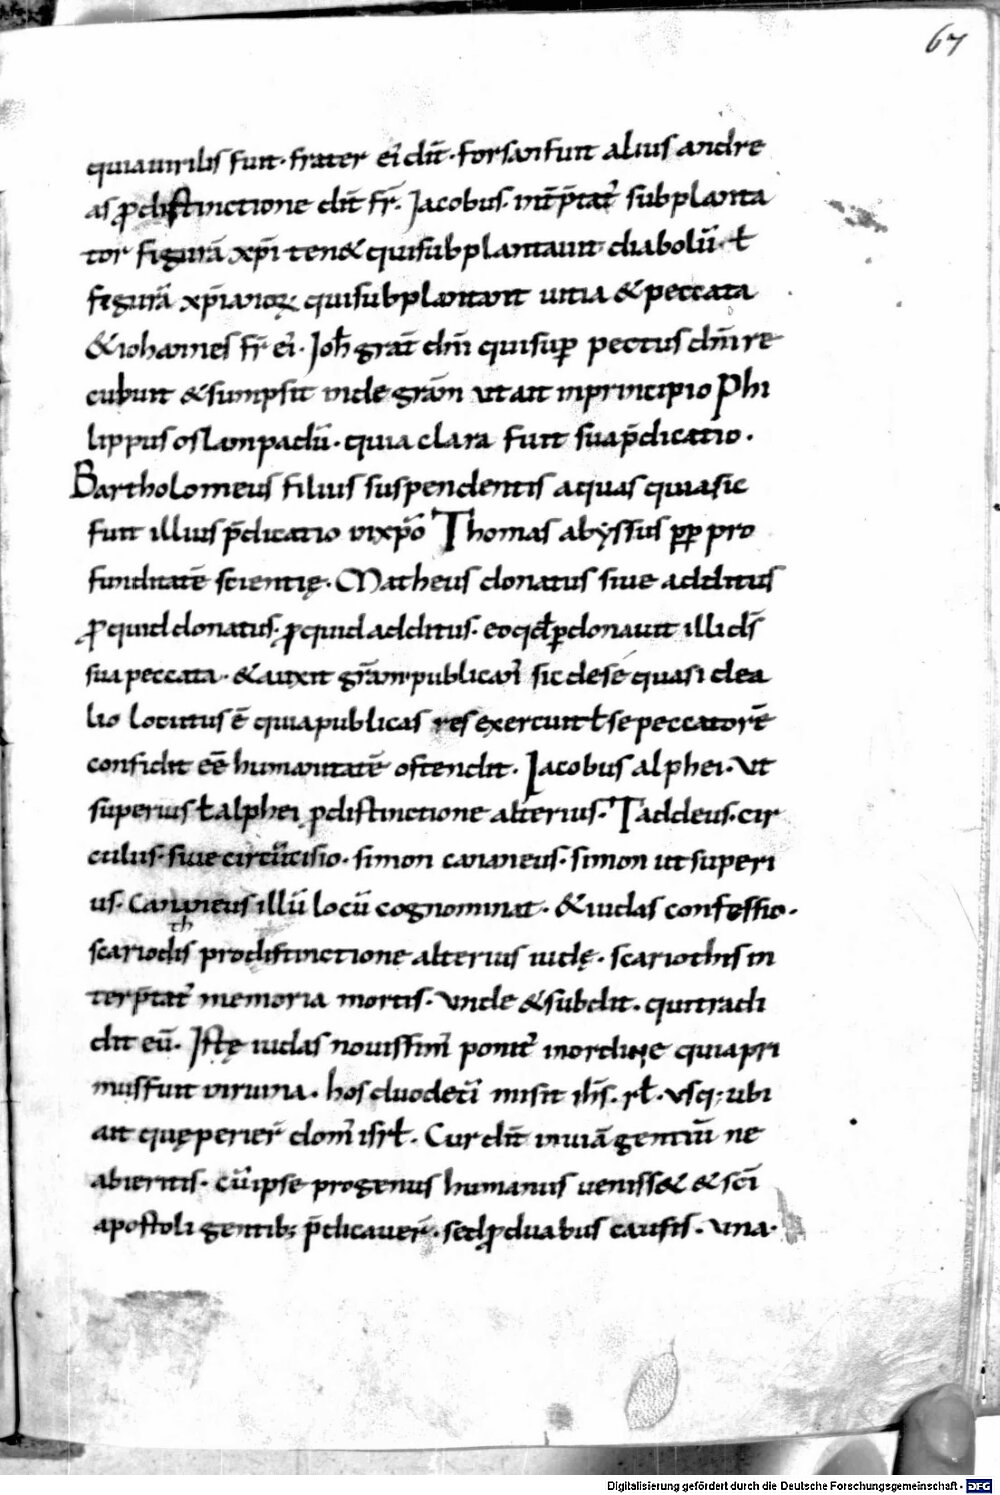 67
quia uirilis fuit· frater ei᾽ dic̄t· forsan fuit alius andre
as p̱ distinctione dic̄t fr̄· Jacobus· int̄p̄tat᾽ subplanta
tor figurā xp̄i ten& qui subplantauit diabolū· ł
figurā xp̄ianoꝝ qui subplantant uitia & peccata
& iohannes fr̄ ei᾽· Joh̄ grat̄ dn̄i qui sup̱ pectus dn̄i re
cubuit & sumpsit inde grām ut ait in principio Phi
lippus os lampadū· quia clara fuit sua p̄dicatio·
Bartholomeus filius suspendentis aquas quia sic
fuit illius p̄dicatio in xp̄o Thomas abyssus pp̱ pro
funditatē scientię· Matheus donatus siue additus
ꝓ quid donatus· ꝓ quid additus· eo qđ p̱donauit illi ds̄
sua peccata· & auxit grām publican᾽ sic de se quasi de a
lio locutus ē quia publicas res exercuit ł se peccatorē
confidit eē humanitatē ostendit· Jacobus alphei· ut
superius ł alphei p̱ distinctione alterius· Taddeus· cir
culus· siue circūcisio· simon cananeus· simon ut superi
us· Cananeus illū locū cognominat· & iudas confessio·
th
scariodis pro distinctione alterius iudę· scariothis in
terp̄tat᾽ memoria mortis· unde & subdit· qui tradi
dit eū· Jstę iudas nouissim᾽ ponit᾽ in ordine quia pri
mus fuit in ruina· hos duodeci᾽ misit ih̄s· rł· usq; ubi
ait quę perier̄ dom᾽ isrł· Cur dic̄t in uiā gentiū ne
abieritis· cū ipse pro genus humanus ueniss& & sc̄i
apostoli gentib; p̄dicauer̄· sed ꝓ duabus causis· una·
Digitalisierung gefördert durch die Deutsche Forschungsgemeinschaft - DFG